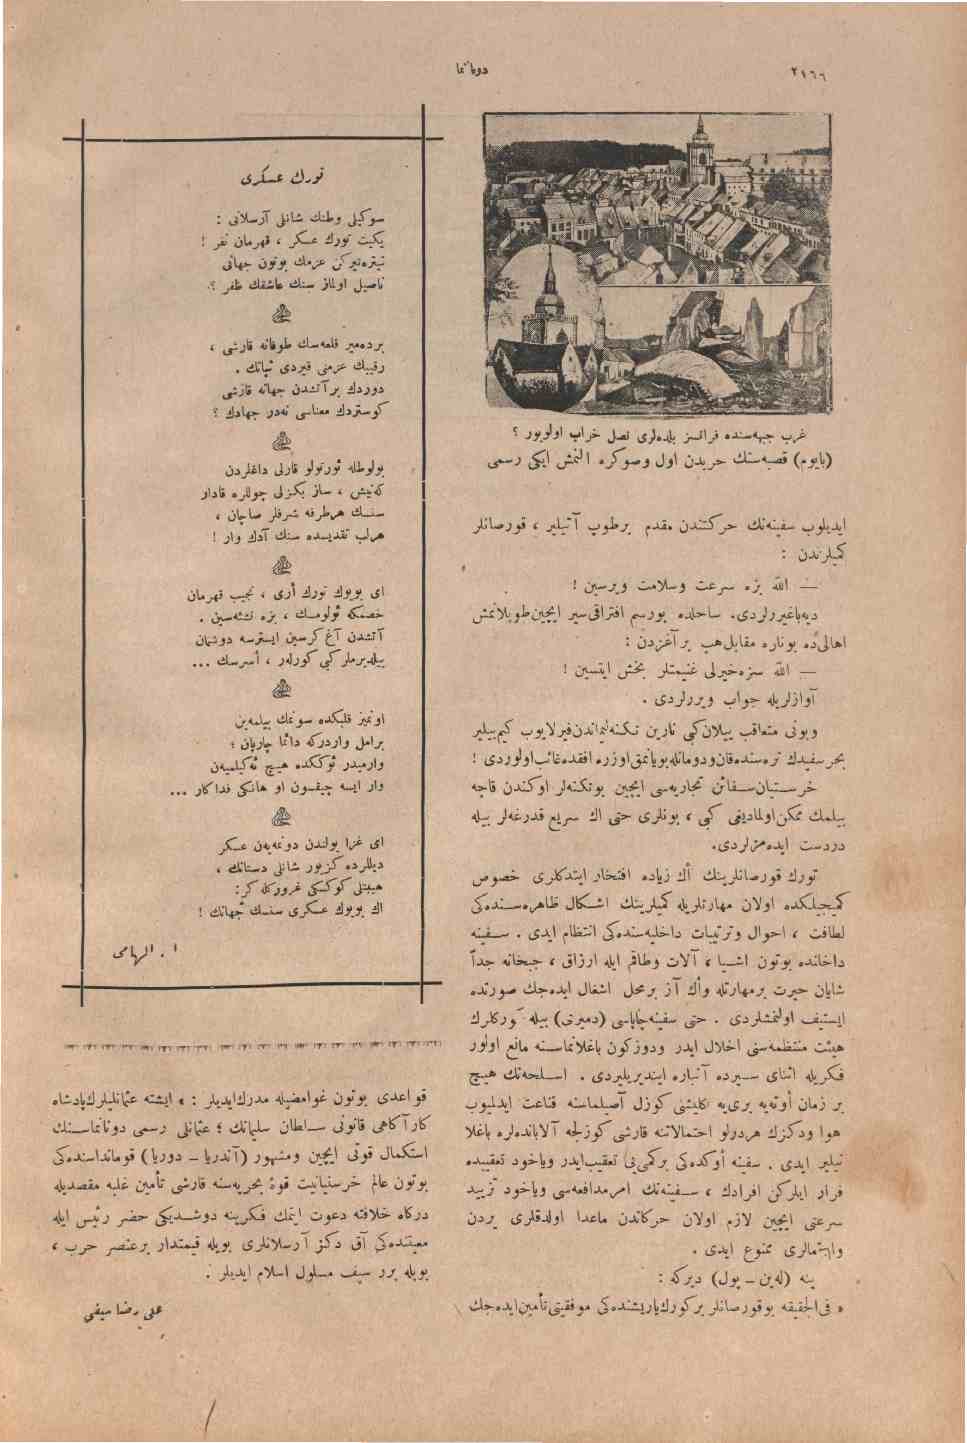 ٢١٦٦
دونانما
غرب جبهه‌سنده فرانسز بلده‌لری نصل خراب اولویور ؟
(باپوم) قصبه‌سنك حربدن اول وصوكره آلنمش ایكی رسمی
ایدیلوب سفینه‌نك حركتندن مقدم برطوپ آتیلیر ، قورصانلر
كمیلرندن :
— الله بزه سرعت وسلامت ویرسین !
دیه‌باغیررلردی. ساحلده بورسم افتراقی‌سیر ایچین‌طوپلانمش
اهالی‌ده بونلره مقابل‌هپ برآغزدن :
— الله سزه‌خیرلی غنیمتلر بخش ایتسین !
آوازلریله جواب ویررلردی .
وبونی متعاقب ییلان‌كبی نارین تكنه‌لیماندن‌فیرلایوب كیم‌بیلیر
بحرسفیدك نره‌سنده‌قان‌ودومانله‌بویانمق‌اوزره افقده‌غائب‌اولوردی !
خرستیان‌سفائن تجاریه‌سی ایچین بوتكنه‌لر اوكندن قاچه
بیلمك ممكن‌اولمادیغی كبی ، بونلری حتی اك سریع قدرغه‌لر بیله
دردست ایده‌مزلردی.
تورك قورصانلرینك أك زیاده افتخار ایتدكلری خصوص
كمیجیلكده اولان مهارتلریله كمیلرینك اشكال ظاهره‌سنده‌كی
لطافت ، احوال وترتیبات داخلیه‌سنده‌كی انتظام ایدی . سفینه
داخلنده بوتون اشیا ، آلات وطاقم ایله ارزاق ، جبخانه جداً
شایان حیرت برمهارتله وأك آز برمحل اشغال ایده‌جك صورتده
ایستیف اولنمشلردی . حتی سفینه‌چاپاسی (دمیرنی) بیله كوركلرك
هیئت منتظمه‌سنی اخلال ایدر ودوزكون باغلانماسنه مانع اولور
فكریله اثنای سیرده آنباره ایندیریلیردی . اسلحه‌نك هیچ
بر زمان أوته‌یه بری‌یه كلیشی كوزل آصیلماسنه قناعت ایدلمیوب
هوا ودكزك هردرلو احتمالاتنه قارشی كوزلجه آلاباندەلره باغلا
نیلیر ایدی . سفینه أوكده‌كی بركمی‌نی تعقیب‌ایدر ویاخود تعقیبده
فرار ایلركن افرادك ، سفینه‌نك امرمدافعه‌سی ویاخود تزیید
سرعتی ایچین لازم اولان حركاتدن ماعدا اولدقلری یردن
وایتمالری ممنوع ایدی .
ینه (له‌ین – پول) دیركه :
« فی‌الحقیقه بوقورصانلر بركورك‌یاریشنده‌كی موفقیتی‌تأمین‌ایده‌جك
تورك عسكری
سوكیلی وطنك شانلی آرسلانی :
یكیت تورك عسكر ، قهرمان نفر !
تیتره‌تیركن عزمك بوتون جهانی
ناصیل اولماز سنك عاشقك ظفر ؟
بردەمیر قلعه‌سك طوفانه قارشی ،
رقیبك عزمنی قیردی ثباتك .
دوردك برآتشدن جهانه قارشی
كوستردك معناسی نه‌در جهادك ؟
بولوطله ئورتولو قارلی داغلردن
كه‌نیش ، ساز بكزلی چوللره قادار
سنسك هرطرفه شرفلر صاچان ،
هرلب تقدیسده سنك آدك وار !
ای بویوك تورك أری ، نجیب قهرمان
خصمكه ئولومسك ، بزه نشئه‌سین .
آتشدن آغ كرسین ایسترسه دوشمان
ییلدیرملر كبی كورلەر ، أسرسك ...
اوتمیز قلبكده سونمك بیلمه‌ین
برامل واردركه دائما چارپان ؛
وارمیدر ئوككده هیچ ئه‌كیلمیه‌ن
وار ایسه چیقسون او هانكی فداكار ...
ای غزا یولندن دونمه‌یه‌ن عسكر
دیللرده كزیور شانلی دستانك ،
هیبتلی كوكسكی غرورركله كر:
اك بویوك عسكری سنسك جهانك !
ا . الهامی
قواعدی بوتون غوامضیله مدرك‌ایدیلر : « ایشته عثمانلیلرك‌پادشاه
كارآكاهی قانونی سلطان سلیمانك ؛ عثمانلی رسمی دونانماسنك
استكمال قوتی ایچین ومشهور (آندریا – دوریا) قومانداسنده‌كی
بوتون عالم خرستیانیت قوهٔ بحریه‌سنه قارشی تأمین غلبه مقصدیله
دركاه خلافته دعوت ایتمك فكرینه دوشدیكی حضر رئیس ایله
معیتنده‌كی آق دكز آرسلانلری بویله قیمتدار برعنصر حرب ،
بویله برر سیف مسلول اسلام ایدیلر .
علی رضا سیفی